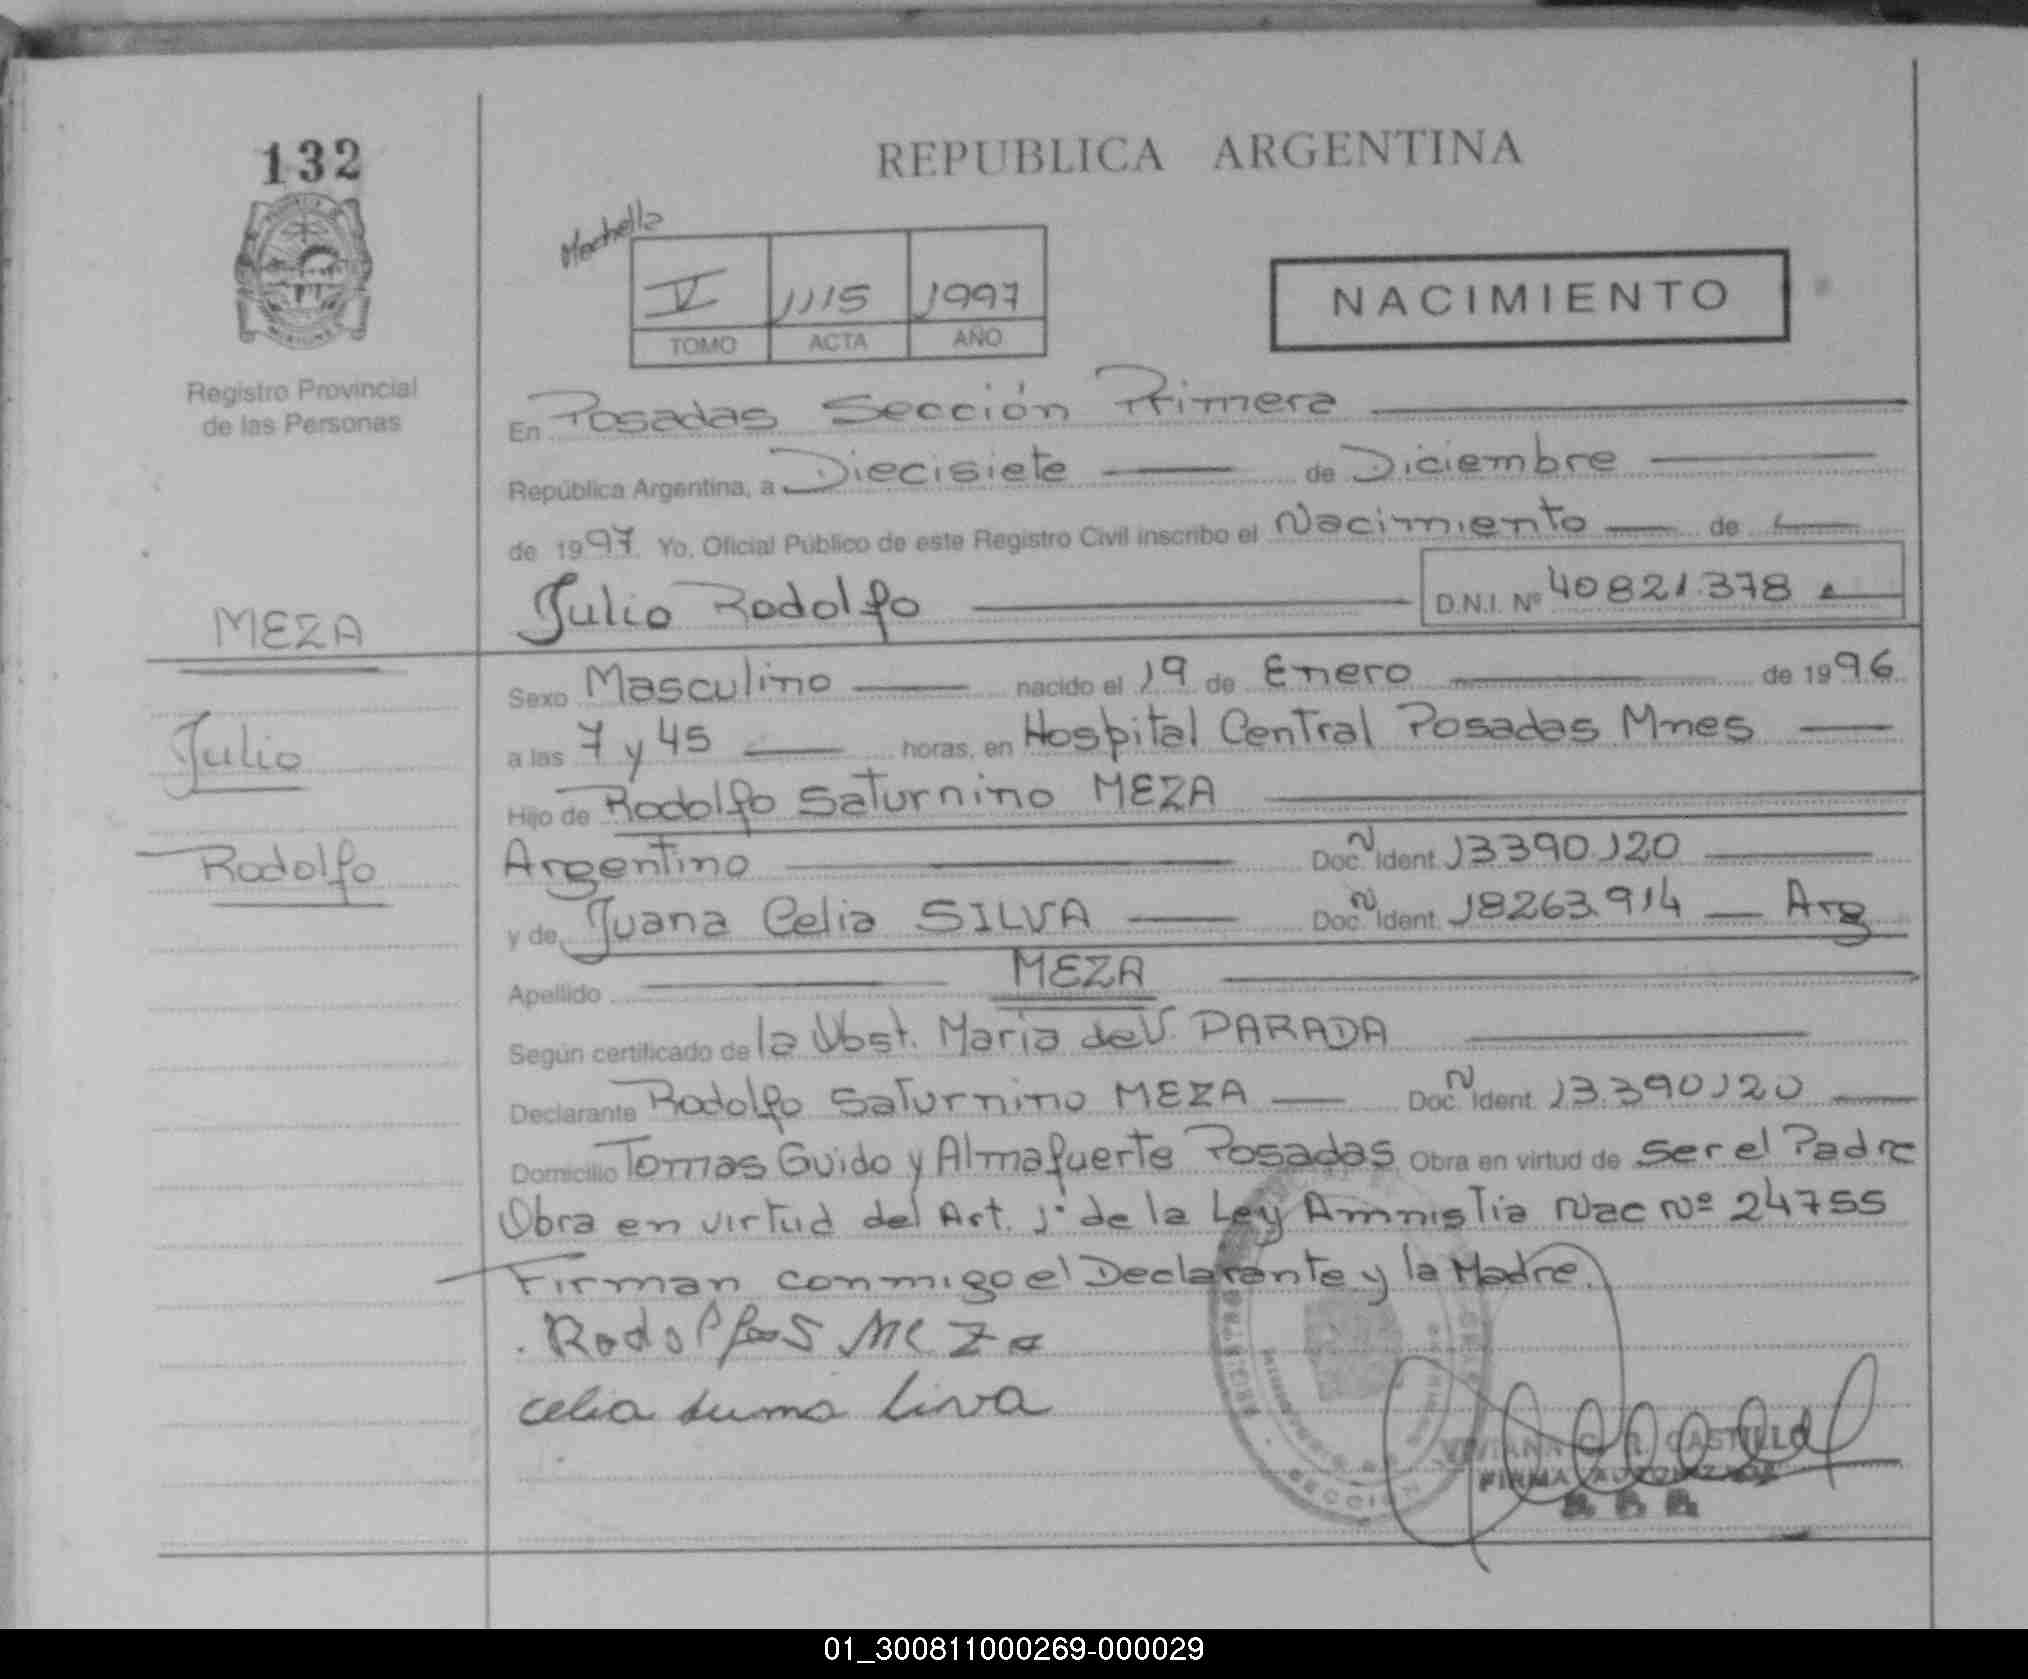 132
REPUBLICA ARGENTINA
Mochella
V 1115 1997
TOMO ACTA AÑO
NACIMIENTO
Registro Provincial
de las Personas
En Posadas Sección Primera
República Argentina, a Diecisiete de Diciembre
de 1997. Yo, Oficial Público de este Registro Civil inscribo el Nacimiento de
Julio Rodolfo D.N.I. Nº 40821.378
MEZA
Sexo Masculino nacido el 19 de Enero de 1996
Julio
a las 7 y 45 horas, en Hospital Central Posadas Mnes
Hijo de Rodolfo Saturnino MEZA
Rodolfo
Argentino Doc. N Ident. 13390120
y de Juana Celia SILVA Doc. N Ident. 18263.914 Arg
Apellido MEZA
Según certificado de la Obst. Maria del V. PARADA
Declarante Rodolfo Saturnino MEZA Doc. N Ident. 13.390120
Domicilio Tomas Guido y Almafuerte Posadas Obra en virtud de ser el Padre
Obra en virtud del Art. 1º de la Ley Amnistia Nac Nº 24755
Firman conmigo el Declarante y la Madre.
Rodolfo S Meza
celia
VIVIANA CASTILLO
FIRMA AUTORIZADA
SECCION
01_300811000269-000029